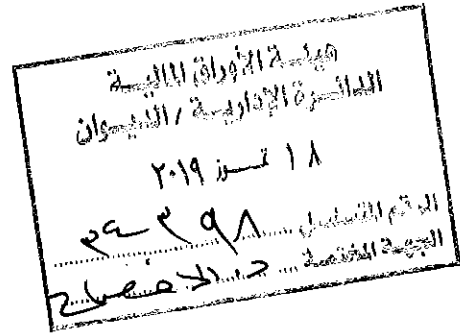 هيئة الأوراق المالية
الدائرة الإدارية / الديوان
١٨ تموز ٢٠١٩
الرقم المتسلسل
الجهة المختصة ... الافصاح